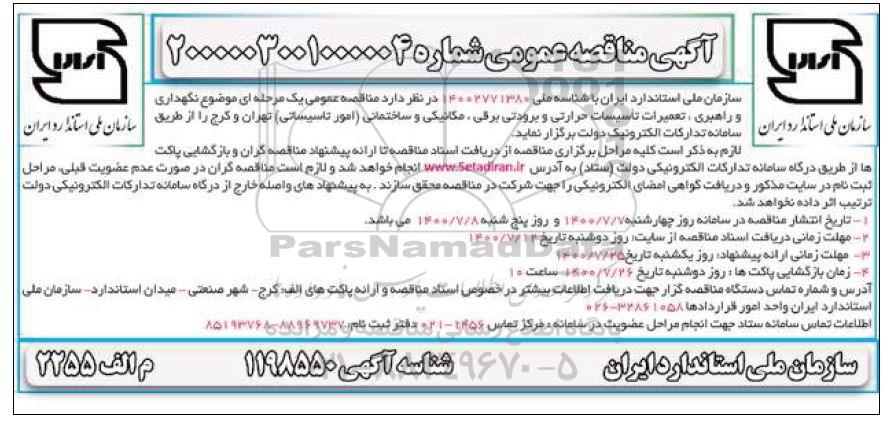 آگهی مناقصه عمومی شماره ۲۰۰۰۰۰۳۰۰۱۰۰۰۰۰۴
سازمان ملی استاندارد ایران
سازمان ملی استاندارد ایران
سازمان ملی استاندارد ایران با شناسه ملی ۱۴۰۰۲۷۷۱۳۸۰ در نظر دارد مناقصه عمومی یک مرحله ای موضوع نگهداری
و راهبری ، تعمیرات تأسیسات حرارتی و برودتی برقی ، مکانیکی و ساختمانی (امور تاسیساتی) تهران و کرج را از طریق
سامانه تدارکات الکترونیک دولت برگزار نماید.
لازم به ذکر است کلیه مراحل برگزاری مناقصه از دریافت اسناد مناقصه تا ارائه پیشنهاد مناقصه گران و بازگشایی پاکت
ها از طریق درگاه سامانه تدارکات الکترونیکی دولت (ستاد) به آدرس www.Setadiran.ir انجام خواهد شد و لازم است مناقصه گران در صورت عدم عضویت قبلی، مراحل
ثبت نام در سایت مذکور و دریافت گواهی امضای الکترونیکی را جهت شرکت در مناقصه محقق سازند . به پیشنهاد های واصله خارج از درگاه سامانه تدارکات الکترونیکی دولت
ترتیب اثر داده نخواهد شد.
۱- تاریخ انتشار مناقصه در سامانه روز چهارشنبه ۱۴۰۰/۷/۷ و روز پنج شنبه ۱۴۰۰/۷/۸ می باشد.
۲- مهلت زمانی دریافت اسناد مناقصه از سایت: روز دوشنبه تاریخ ۱۴۰۰/۷/۱۲
۳- مهلت زمانی ارائه پیشنهاد: روز یکشنبه تاریخ ۱۴۰۰/۷/۲۵
۴- زمان بازگشایی پاکت ها : روز دوشنبه تاریخ ۱۴۰۰/۷/۲۶ ساعت ۱۰
آدرس و شماره تماس دستگاه مناقصه گزار جهت دریافت اطلاعات بیشتر در خصوص اسناد مناقصه و ارائه پاکت های الف: کرج- شهر صنعتی - میدان استاندارد- سازمان ملی
استاندارد ایران واحد امور قراردادها ۳۲۸۶۱۰۵۸-۰۲۶
اطلاعات تماس سامانه ستاد جهت انجام مراحل عضویت در سامانه : مرکز تماس ۱۴۵۶-۰۲۱ دفتر ثبت نام: ۸۸۹۶۹۷۳۷-۸۵۱۹۳۷۶۸
سازمان ملی استاندارد ایران شناسه آگهی ۱۱۹۸۵۵۰ م الف ۲۲۵۵
ParsNamadData
پایگاه اطلاع رسانی مناقصه و مزایده